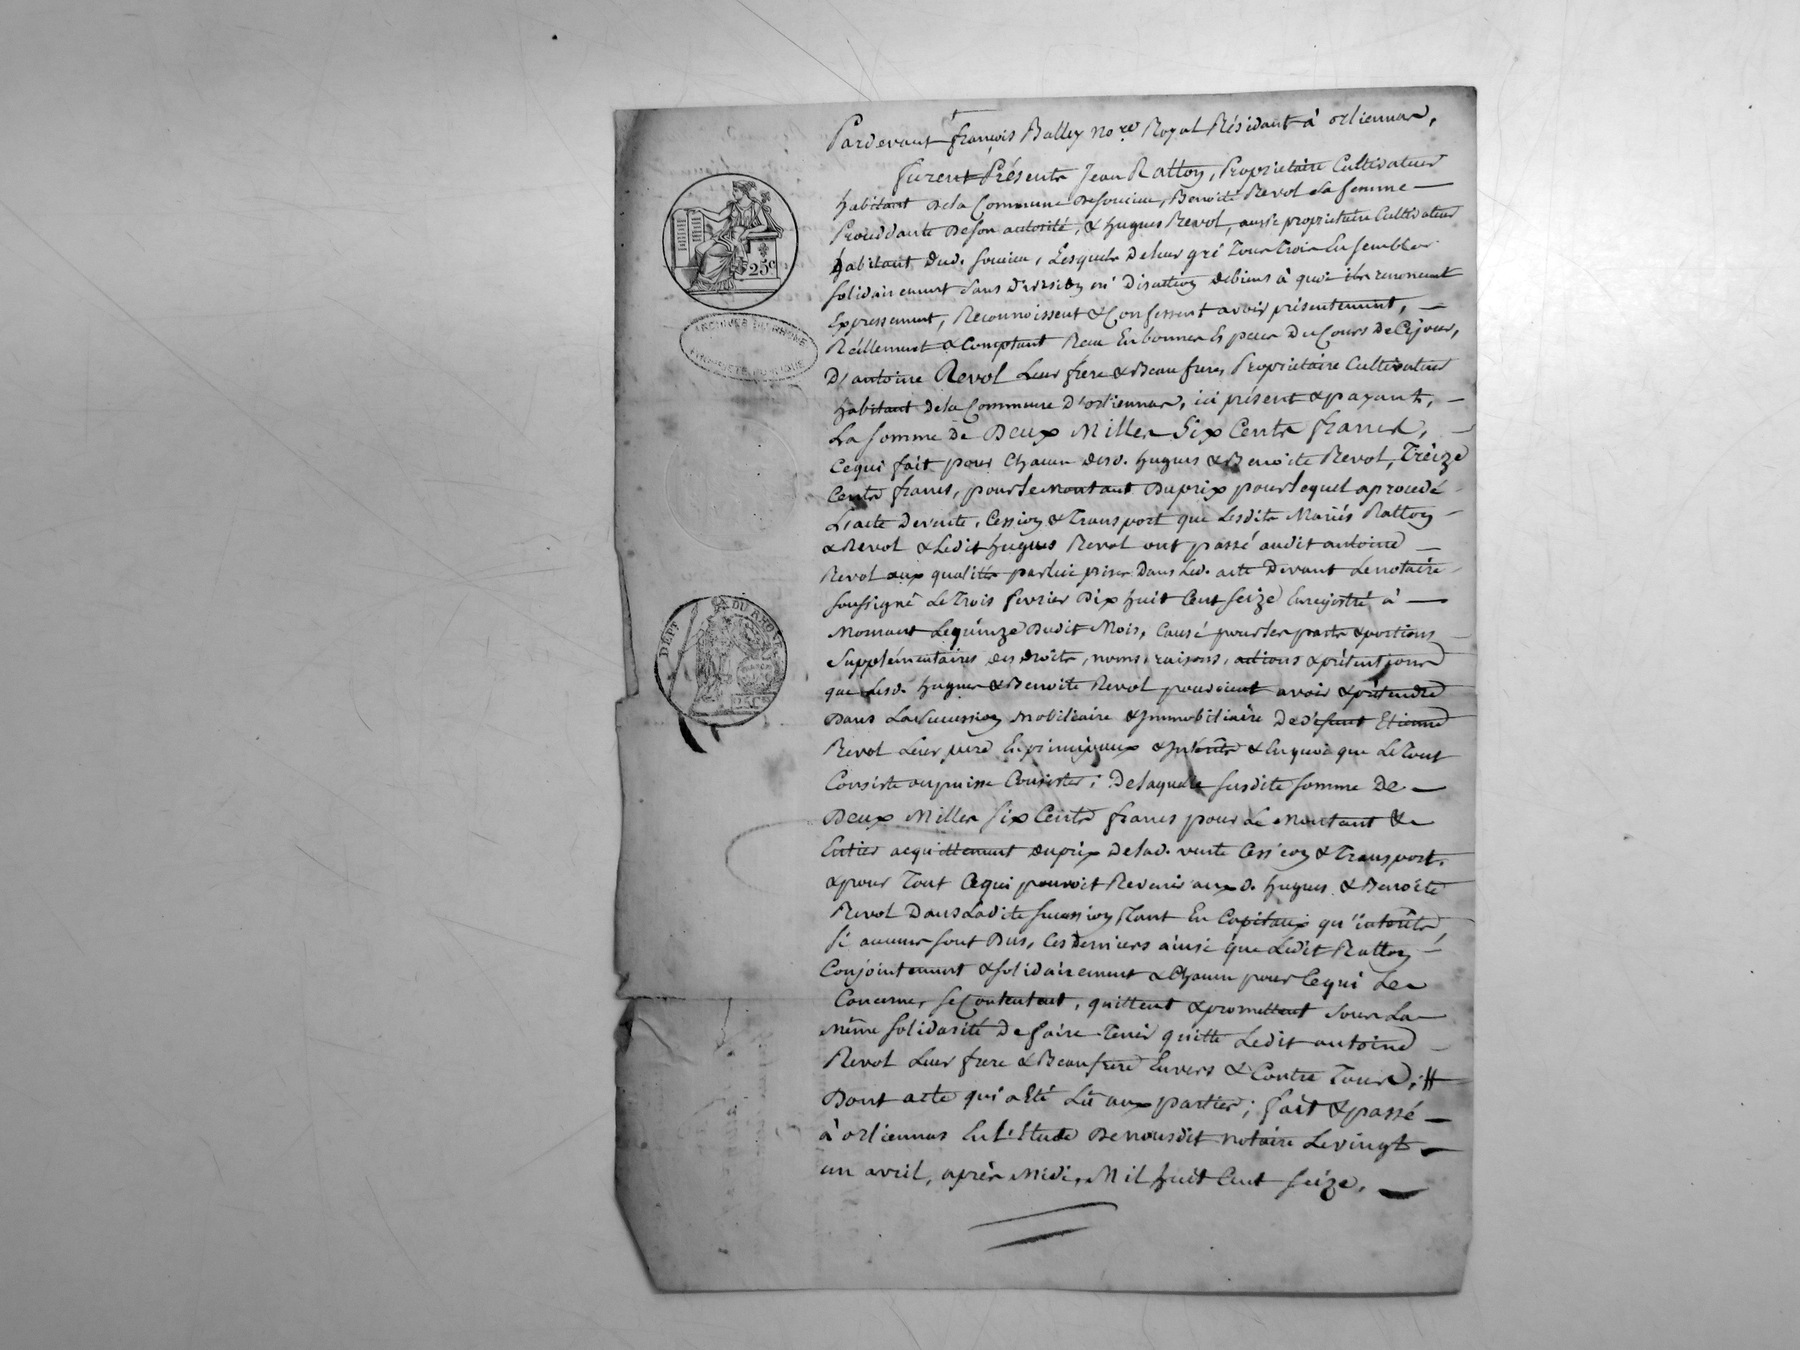 Pardevant françois Balley no.re Royal Résidant à orlienas,
furent Présents Jean Ratton, Propriétaire Cultivateur
habitant De la Commune De Soucieu, Benoite Revol sa femme
Procédante De son autorité, & hugues Revol, aussi propriétaire Cultivateur
habitant dud. Soucieu, Lesquels De leur gré Tous Trois Ensembles
solidairement sans Division ni Discution de biens à quoi ils renoncent
Expressement, Reconnoissent & Confessent avoir présentement,
Réellement & Comptant Recu En bonnes Espèces Du Cours De Ce jour,
D'antoine Revol Leur frère & Beau frere, Propriétaire Cultivateur
habitant de la Commune D'orlienas, ici présent & payant,
La somme de Deux Milles Six Cents francs,
Ce qui fait pour Chacun desd. hugues & Benoite Revol, Treize
Cents francs, pour le montant Du prix pour lequel a procedé
L'acte De vente, Cession & Transport que Lesdits Mariés Ratton
& Revol & Ledit hugues Revol ont passé audit antoine
Revol aux qualités par lui prises Dans Led. acte Devant Le notaire
soussigné Le Trois fevrier Dix huit Cent Seize Enregistré à
Mornant Le quinze Dudit Mois, Causé pour les parts & portions
supplémentaires des droits, noms, raisons, actions & prétentions
que Lesd. hugues & Benoite Revol pouvoient avoir & prétendre
Dans La Succession Mobiliaire & Immobiliaire De défunt Etienne
Revol Leur père En principaux & Intérêts & En quoi que Le Tout
Consiste ou puisse Consister; De laquelle susdite somme De
Deux Milles Six Cents francs pour Le Montant &
Entier acquittement du prix De lad. vente Cession & Transport,
& pour Tout Ce qui pouvoit Revenir auxd. hugues & Benoite
Revol Dans Ladite Succession Tant En Capitaux qu'intérêts,
si aucuns sont Dus, Ces Derniers ainsi que Ledit Ratton
Conjointement & solidairement & Chacun pour Ce qui Les
Concerne, se Contentent, quittent & promettent sous La
même solidarité De faire Tenir quitte Ledit antoine
Revol Leur frere & Beau frere Envers & Contre Tous;
Dont acte qui a Eté Lû aux parties; fait & passé
à orlienas En L'Etude De nousdit notaire Le vingt
un avril, après Midi, Mil huit Cent Seize.
25c
ARCHIVES DU RHONE
DEPT DU RHONE